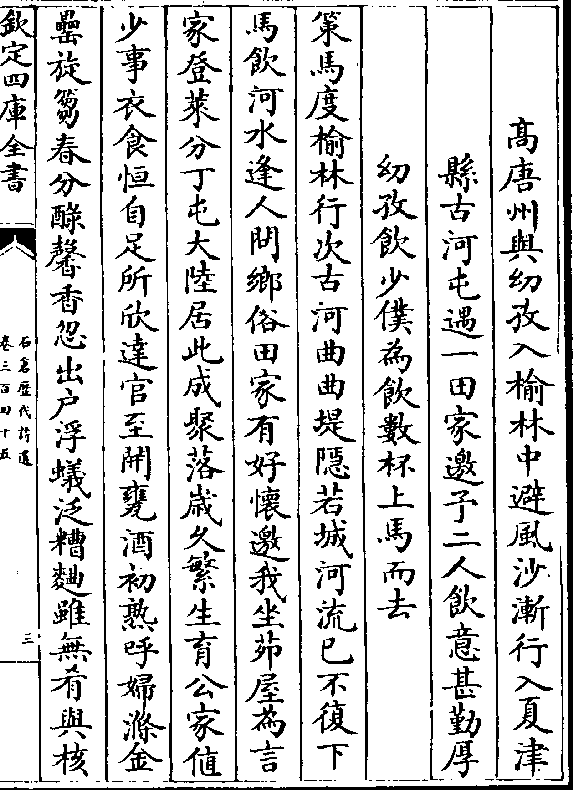 高唐州與幼孜入榆林中避風沙漸行入夏津
縣古河屯遇一田家邀予二人飲意甚勤厚
幼孜飲少僕為飲數杯上馬而去
策馬度榆林行次古河曲曲堤隱若城河流已不復下
馬飲河水逢人問鄉俗田家有好懷邀我坐茆屋為言
家登萊分丁屯大陸居此成聚落歲久繁生育公家值
少事衣食恒自足所欣達官至開甕酒初熟呼婦滌金
罍旋篘春分醁馨香忽出戶浮蟻泛糟麯雖無肴與核
欽定四庫全書
石倉歷代詩選
卷三百四十五
三